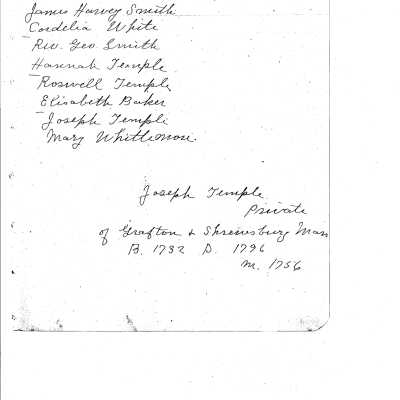 James Harvey Smith
Cordelia White
Rev. Geo Smith
Hannah Temple
Roswell Temple
Elisabeth Baker
Joseph Temple
Mary Whittemore.
Joseph Temple
Private
of Grafton & Shrewsbury Mass
B. 1732 D. 1796
m. 1756